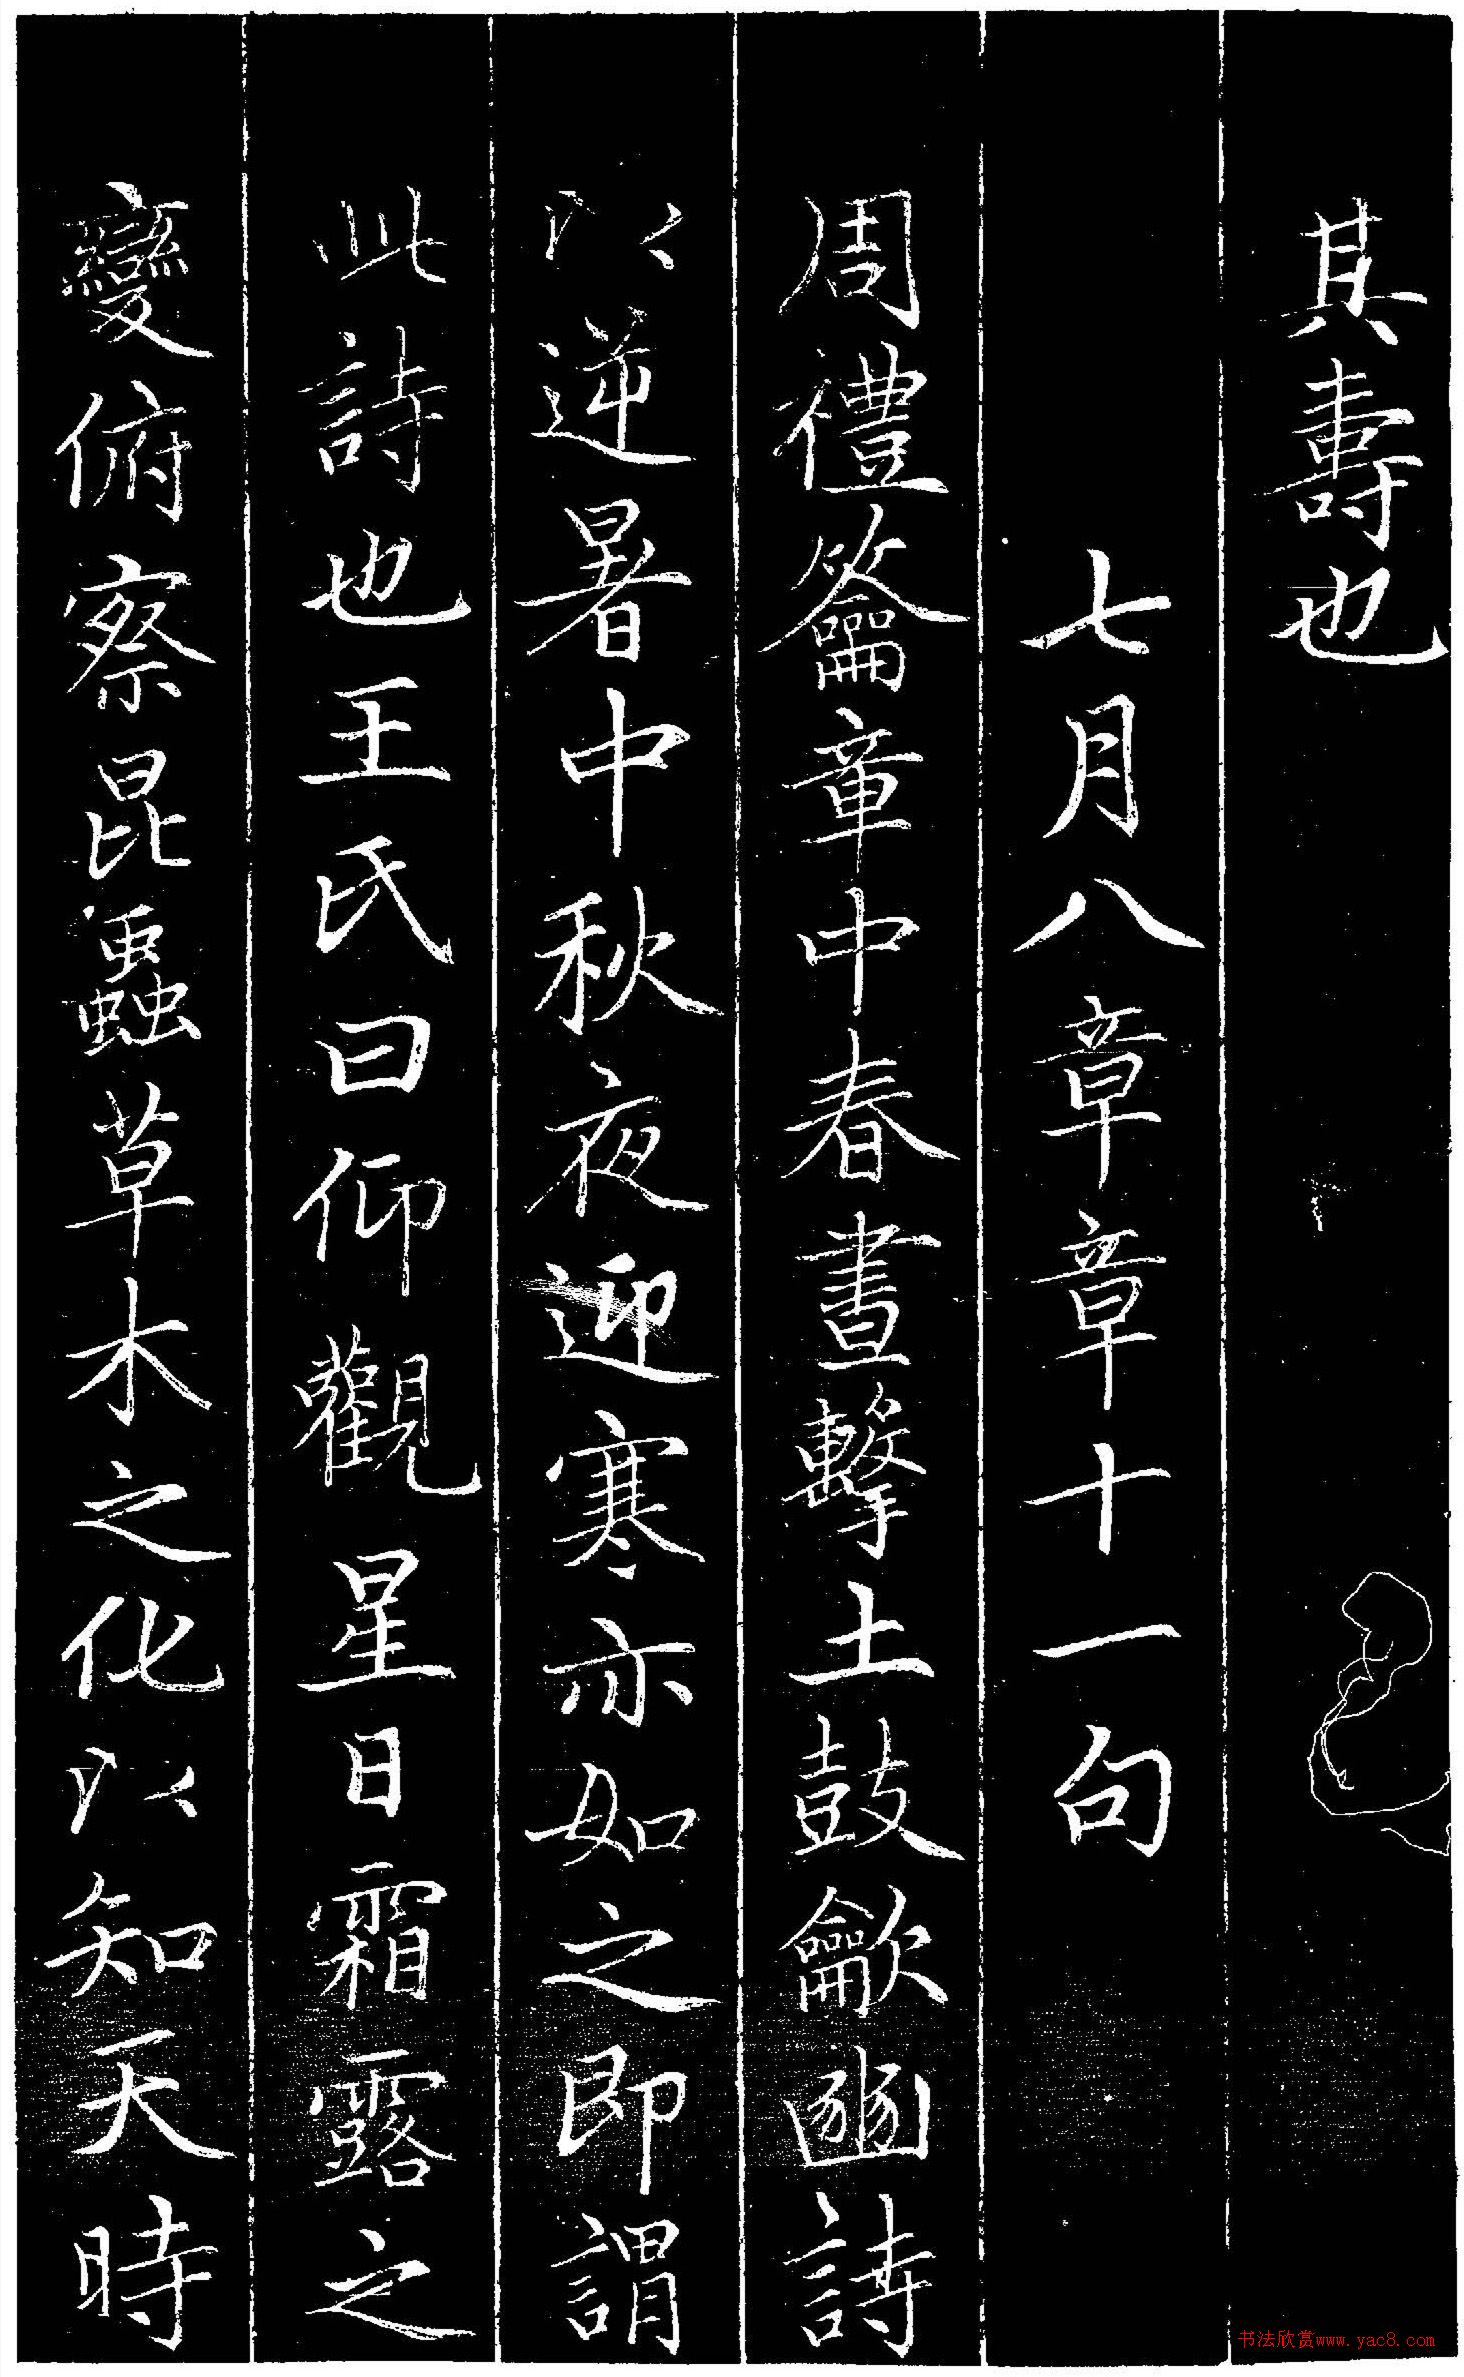 其壽也
七月八章章十一句
周禮籥章中春晝擊土鼓龡豳詩
以逆暑中秋夜迎寒亦如之即謂
此詩也王氏曰仰觀星日霜露之
變俯察昆蟲草木之化以知天時
书法欣赏www.yac8.com